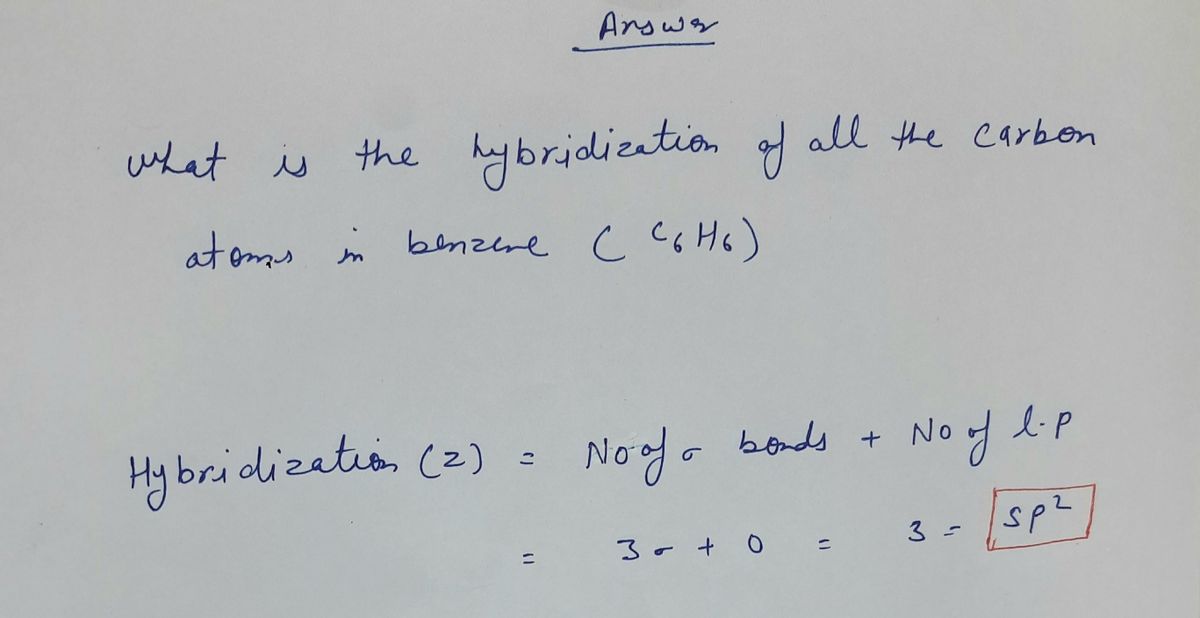 Answer
what is the hybridization of all the carbon
atoms in benzene ( C₆H₆)
Hybridization (z) = No of σ bonds + No of l.p
= 3σ + 0 = 3 = sp²